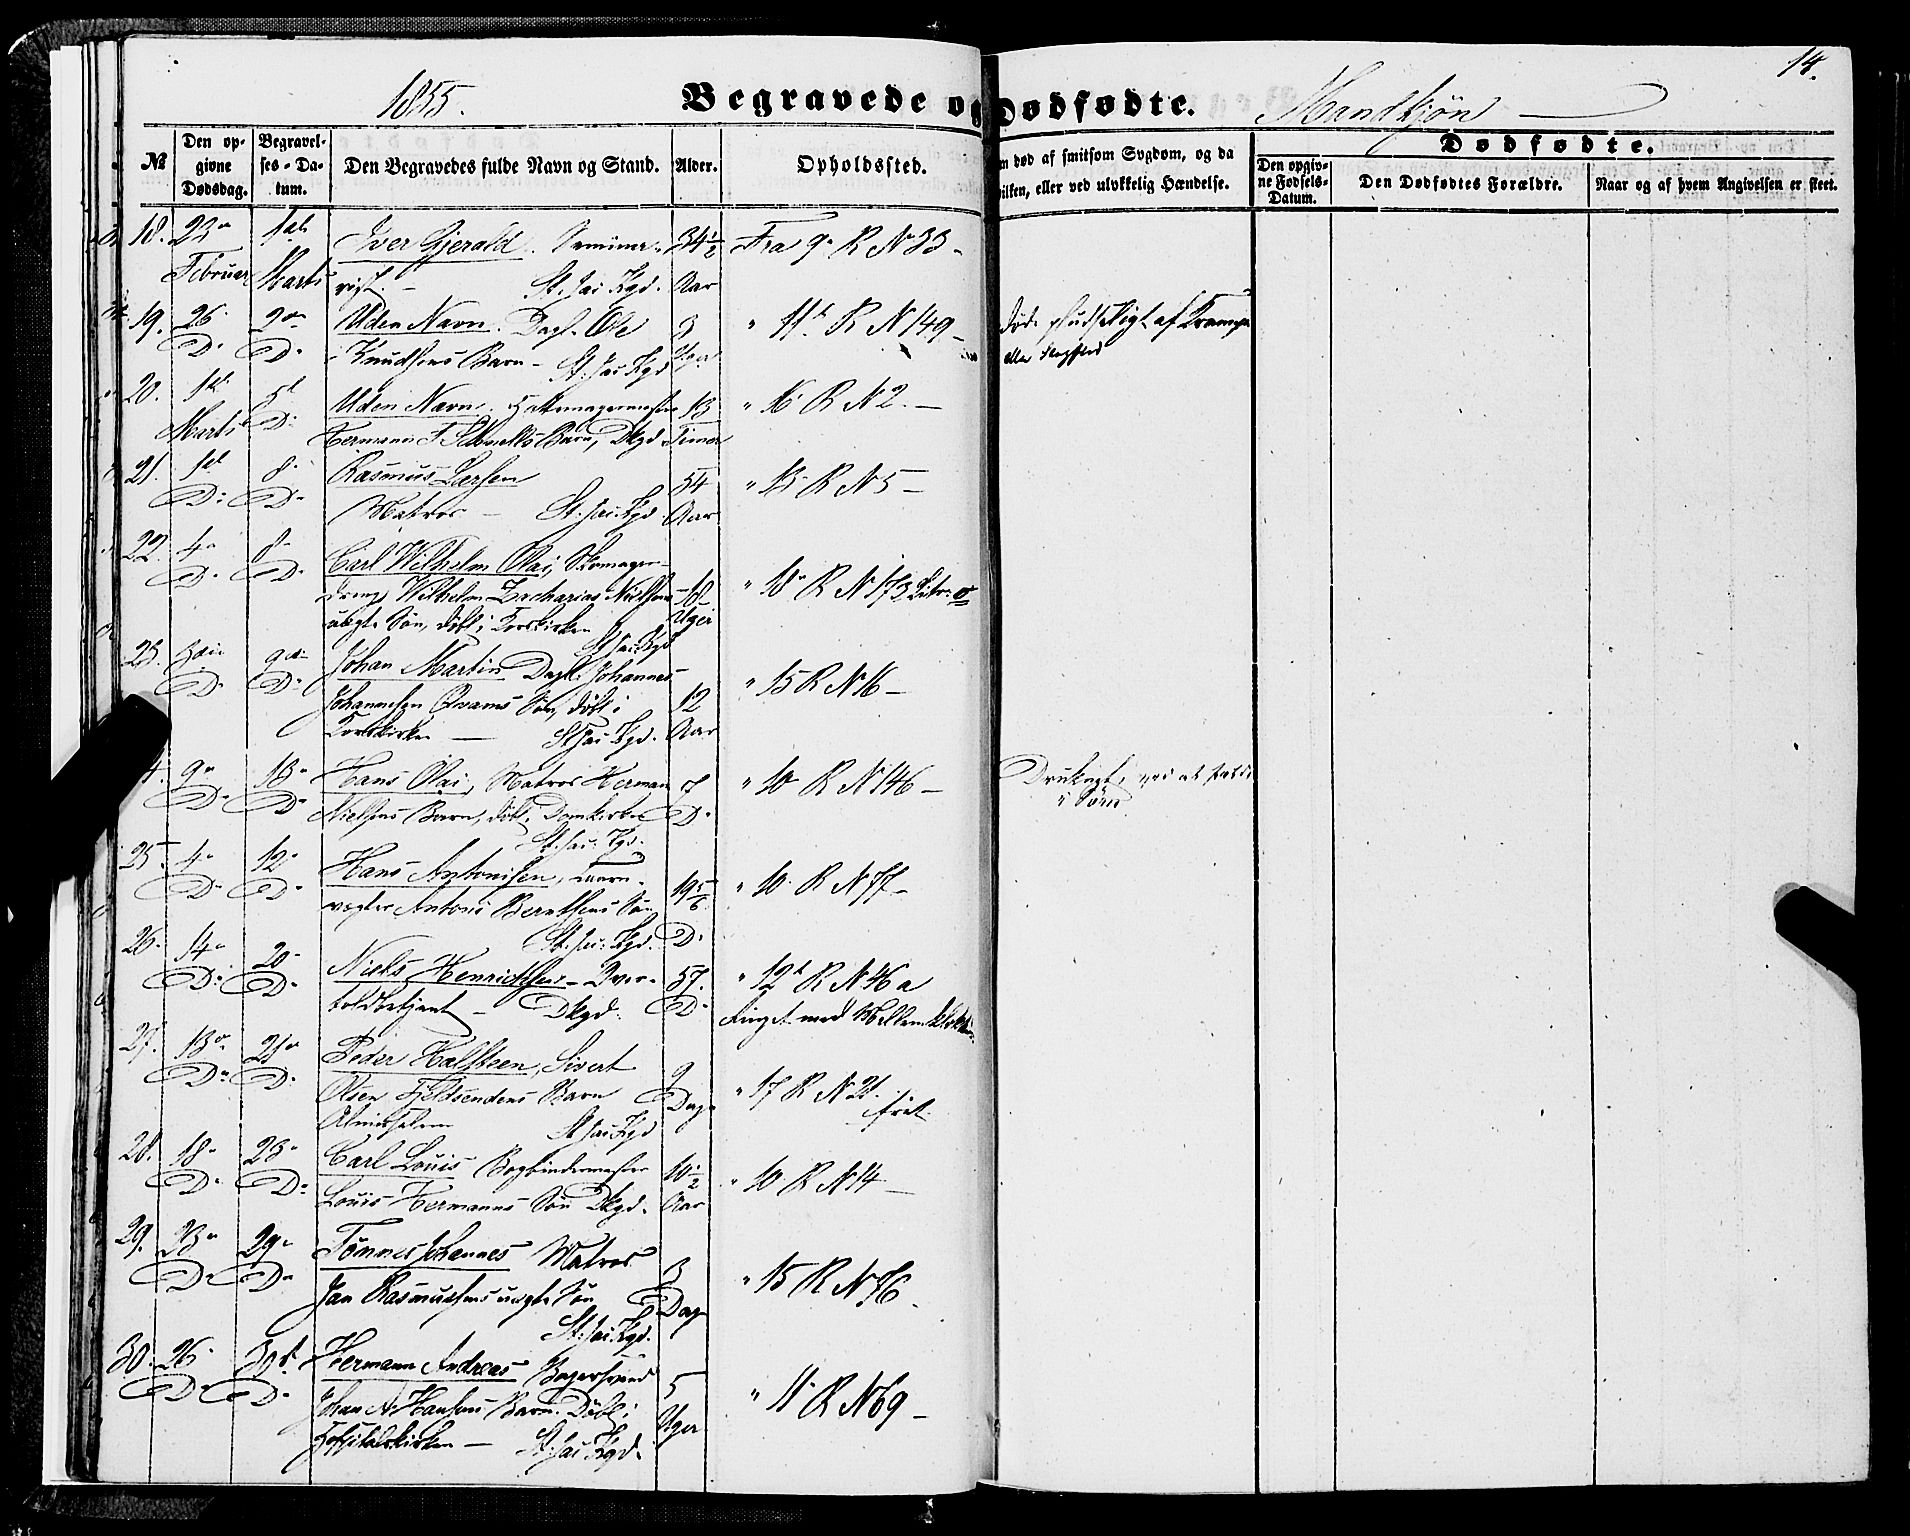 14.
1855.
Begravede og Dødfødte.
Mandkjøn
№
Den opgivne Dødsdag.
Begravelses-Datum.
Den Begravedes fulde Navn og Stand.
Alder.
Opholdssted.
død af smitsom Sygdom, og da
hvilken, eller ved ulykkelig Hændelse.
Dødfødte.
Den opgivne Fødsels-Datum.
Den Dødfødtes Forældre.
Naar og af hvem Angivelsen er skeet.
18. 23 Februar 1ste Marts Iver Gjerald. Semina-
rist. - St. Jac Kgd. 34½ Aar Fra 9 R N 33 -
19. 26 D. 2 D. Uden Navn. Dagl. Ole
Knudsens Barn - St. Jac Kgd 3 Uger " 11 R N 149 - døde pludseligt af Krampe
eller Slagflod
20. 1ste Marts 5 D: Uden Navn. Hattemagermester
Hermann F. Barn, Dkgd. 13 Timer " 16 R N 2. -
21. 1ste D: 8 D. Rasmus Larsen
Matros - St. Jac. Kgd. 54 Aar " 13 R N 5 -
22. 4 D. 8 D. Carl Wilhelm Olai, Skomager-
dreng Wilhelm Zacharias Nielsens
uægte Søn, døbt i Korskirken St Jac Kgd 18 Uger " 18 R N 173 Litr.
23. D. 9 D. Johan Martin Dagl. Johannes
Johannesen Qvams Søn, døbt i
Korskirken - St Jac Kgd. 12 Aar " 15 R N 16 -
9 D. 13 D Hans Olai, Matros Herman
Nielsens Barn, døbt i Domkirken
St. Jac. Kgd. 7 D. " 10 R N 146 - Druknet, ved at falde
i Søen
25. 4 D. 12 D. Hans Antonisen,
vægter Antoni Berntsens Søn
St. Jac. Kgd. 19 5/6 D. " 10 R N 77 -
26. 14 D. 20 D. Niels Henrichsen - Over-
toldbetjent - Dkgd. 57. D. " 12 R N 46 a
Ringet med Mellemklokken
27. 18 D. 21 D. Peder Halsteen, Sivert
Olsen Fjeldsendens Barn
St Jac Kgd 9 Dage " 17 R N 21.
28. 18 D. 23 D: Carl Louis Bogbindermester
Louis Hermanns Søn Dkgd. 10½ Aar " 10 R N 14 -
29. 23 D 29 D Tönnes Johannes Matros
Jan Rasmussens uægte Søn
St. Jac Kgd. 3 Dage " 15 R N 76.
30. 26 D. D. Hermann Andreas Bagersvend
Johan A. Hansens Barn. Døbt i
Hospitalskirken - St. Jac Kgd. 5 Uger " 11 R N 69 -